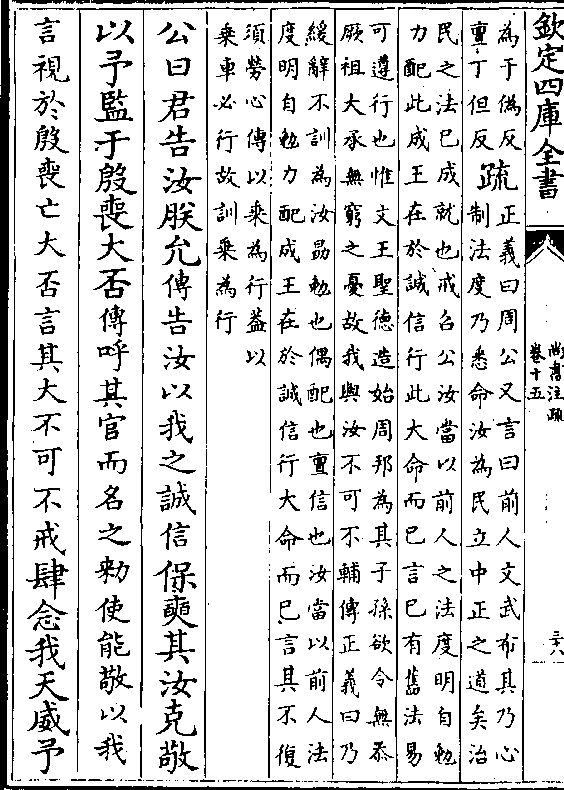 欽定四庫全書
尚書注疏
卷十五
為于偽反
亶丁但反
疏
正義曰周公又言曰前人文武布其乃心
制法度乃悉命汝為民立中正之道矣治
民之法已成就也戒召公汝當以前人之法度明自勉
力配此成王在於誠信行此大命而已言已有舊法易
可遵行也惟文王聖德造始周邦為其子孫欲令無忝
厥祖大承無窮之憂故我與汝不可不輔傳正義曰乃
緩辭不訓為汝勗勉也偶配也亶信也汝當以前人法
度明自勉力配成王在於誠信行大命而已言其不復
須勞心傳以乘為行蓋以
乘車必行故訓乘為行
公曰君告汝朕允傳告汝以我之誠信保奭其汝克敬
以予監于殷喪大否傳呼其官而名之勑使能敬以我
言視於殷喪亡大否言其大不可不戒肆念我天威予